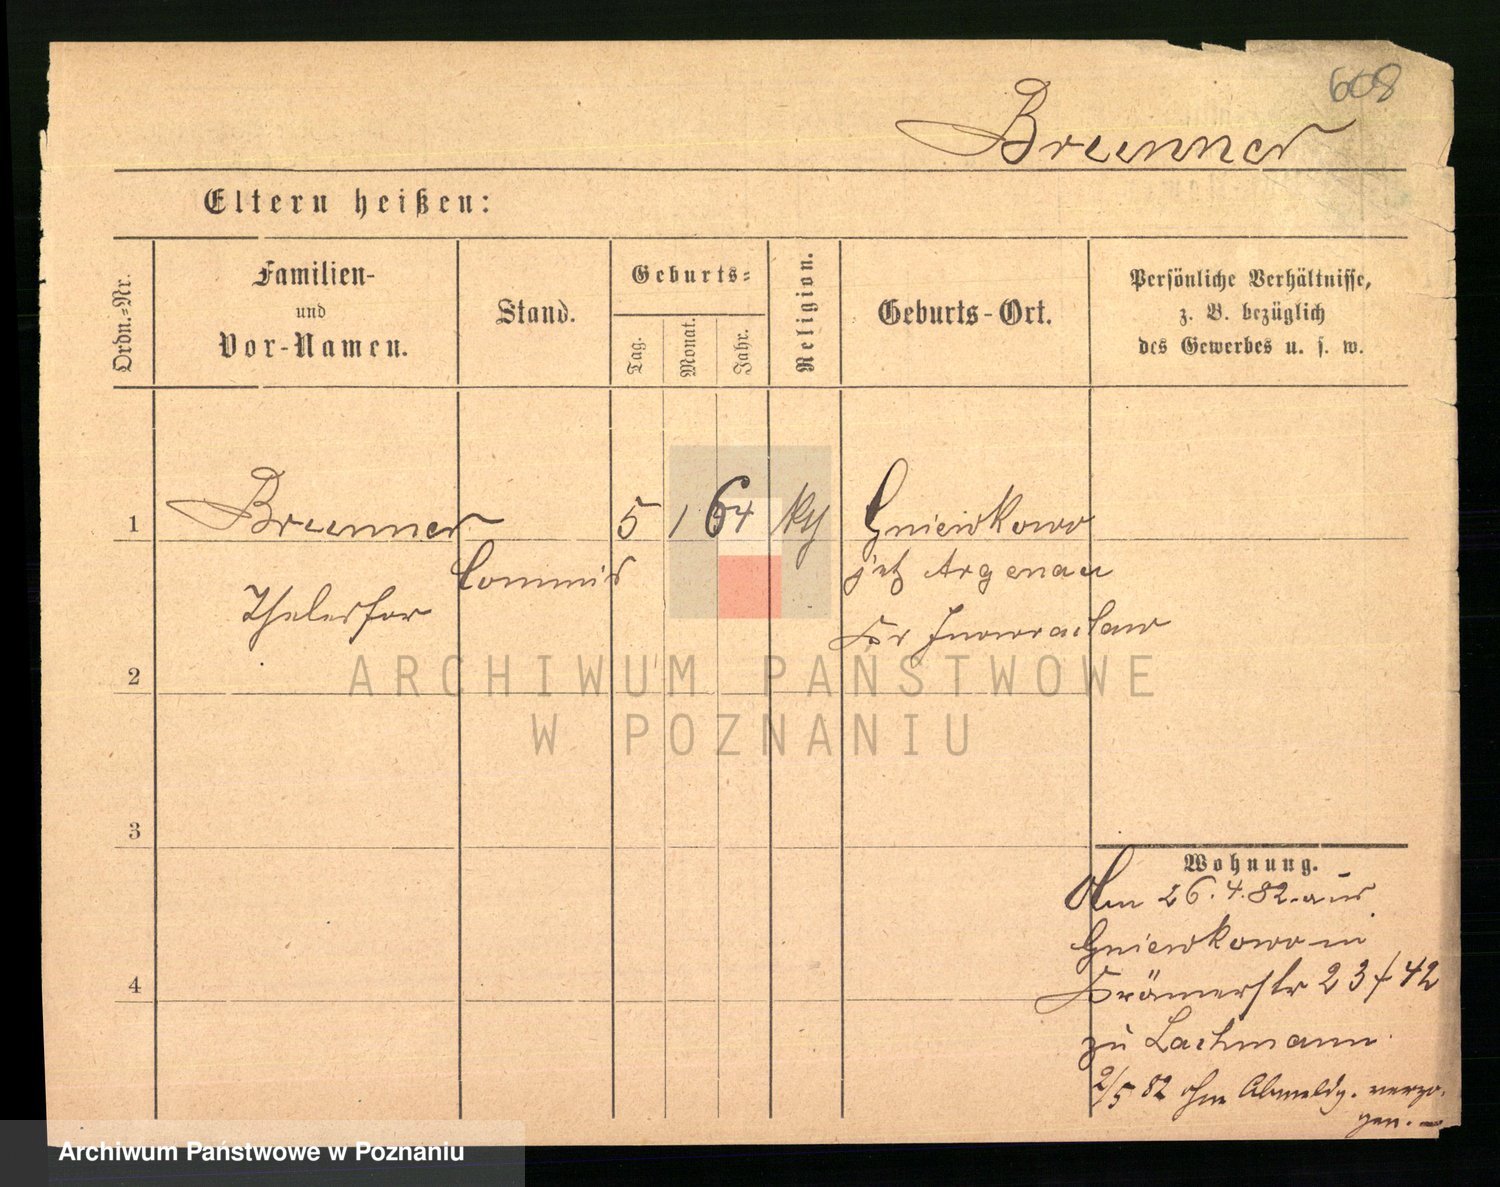 608
Brunner
Eltern heißen:
Ordn.-Nr.
Familien-
und
Vor-Namen.
Stand.
Geburts-
Tag.
Monat.
Jahr.
Religion.
Geburts-Ort.
Persönliche Verhältnisse,
z. B. bezüglich
des Gewerbes u. s. w.
1
Brunner
5 1 64
Gniewkowo
Commis
jetz Argenau
Thelesfor
Kr Inowraclaw
2
ARCHIWUM PAŃSTWOWE
W POZNANIU
3
Wohnung.
26.4.82. aus
Gniewkowo in
4
Krämerstr 23/42
zu Lachmann
2/5 82 ohne Abmeldg. verzo-
gen.
Archiwum Państwowe w Poznaniu